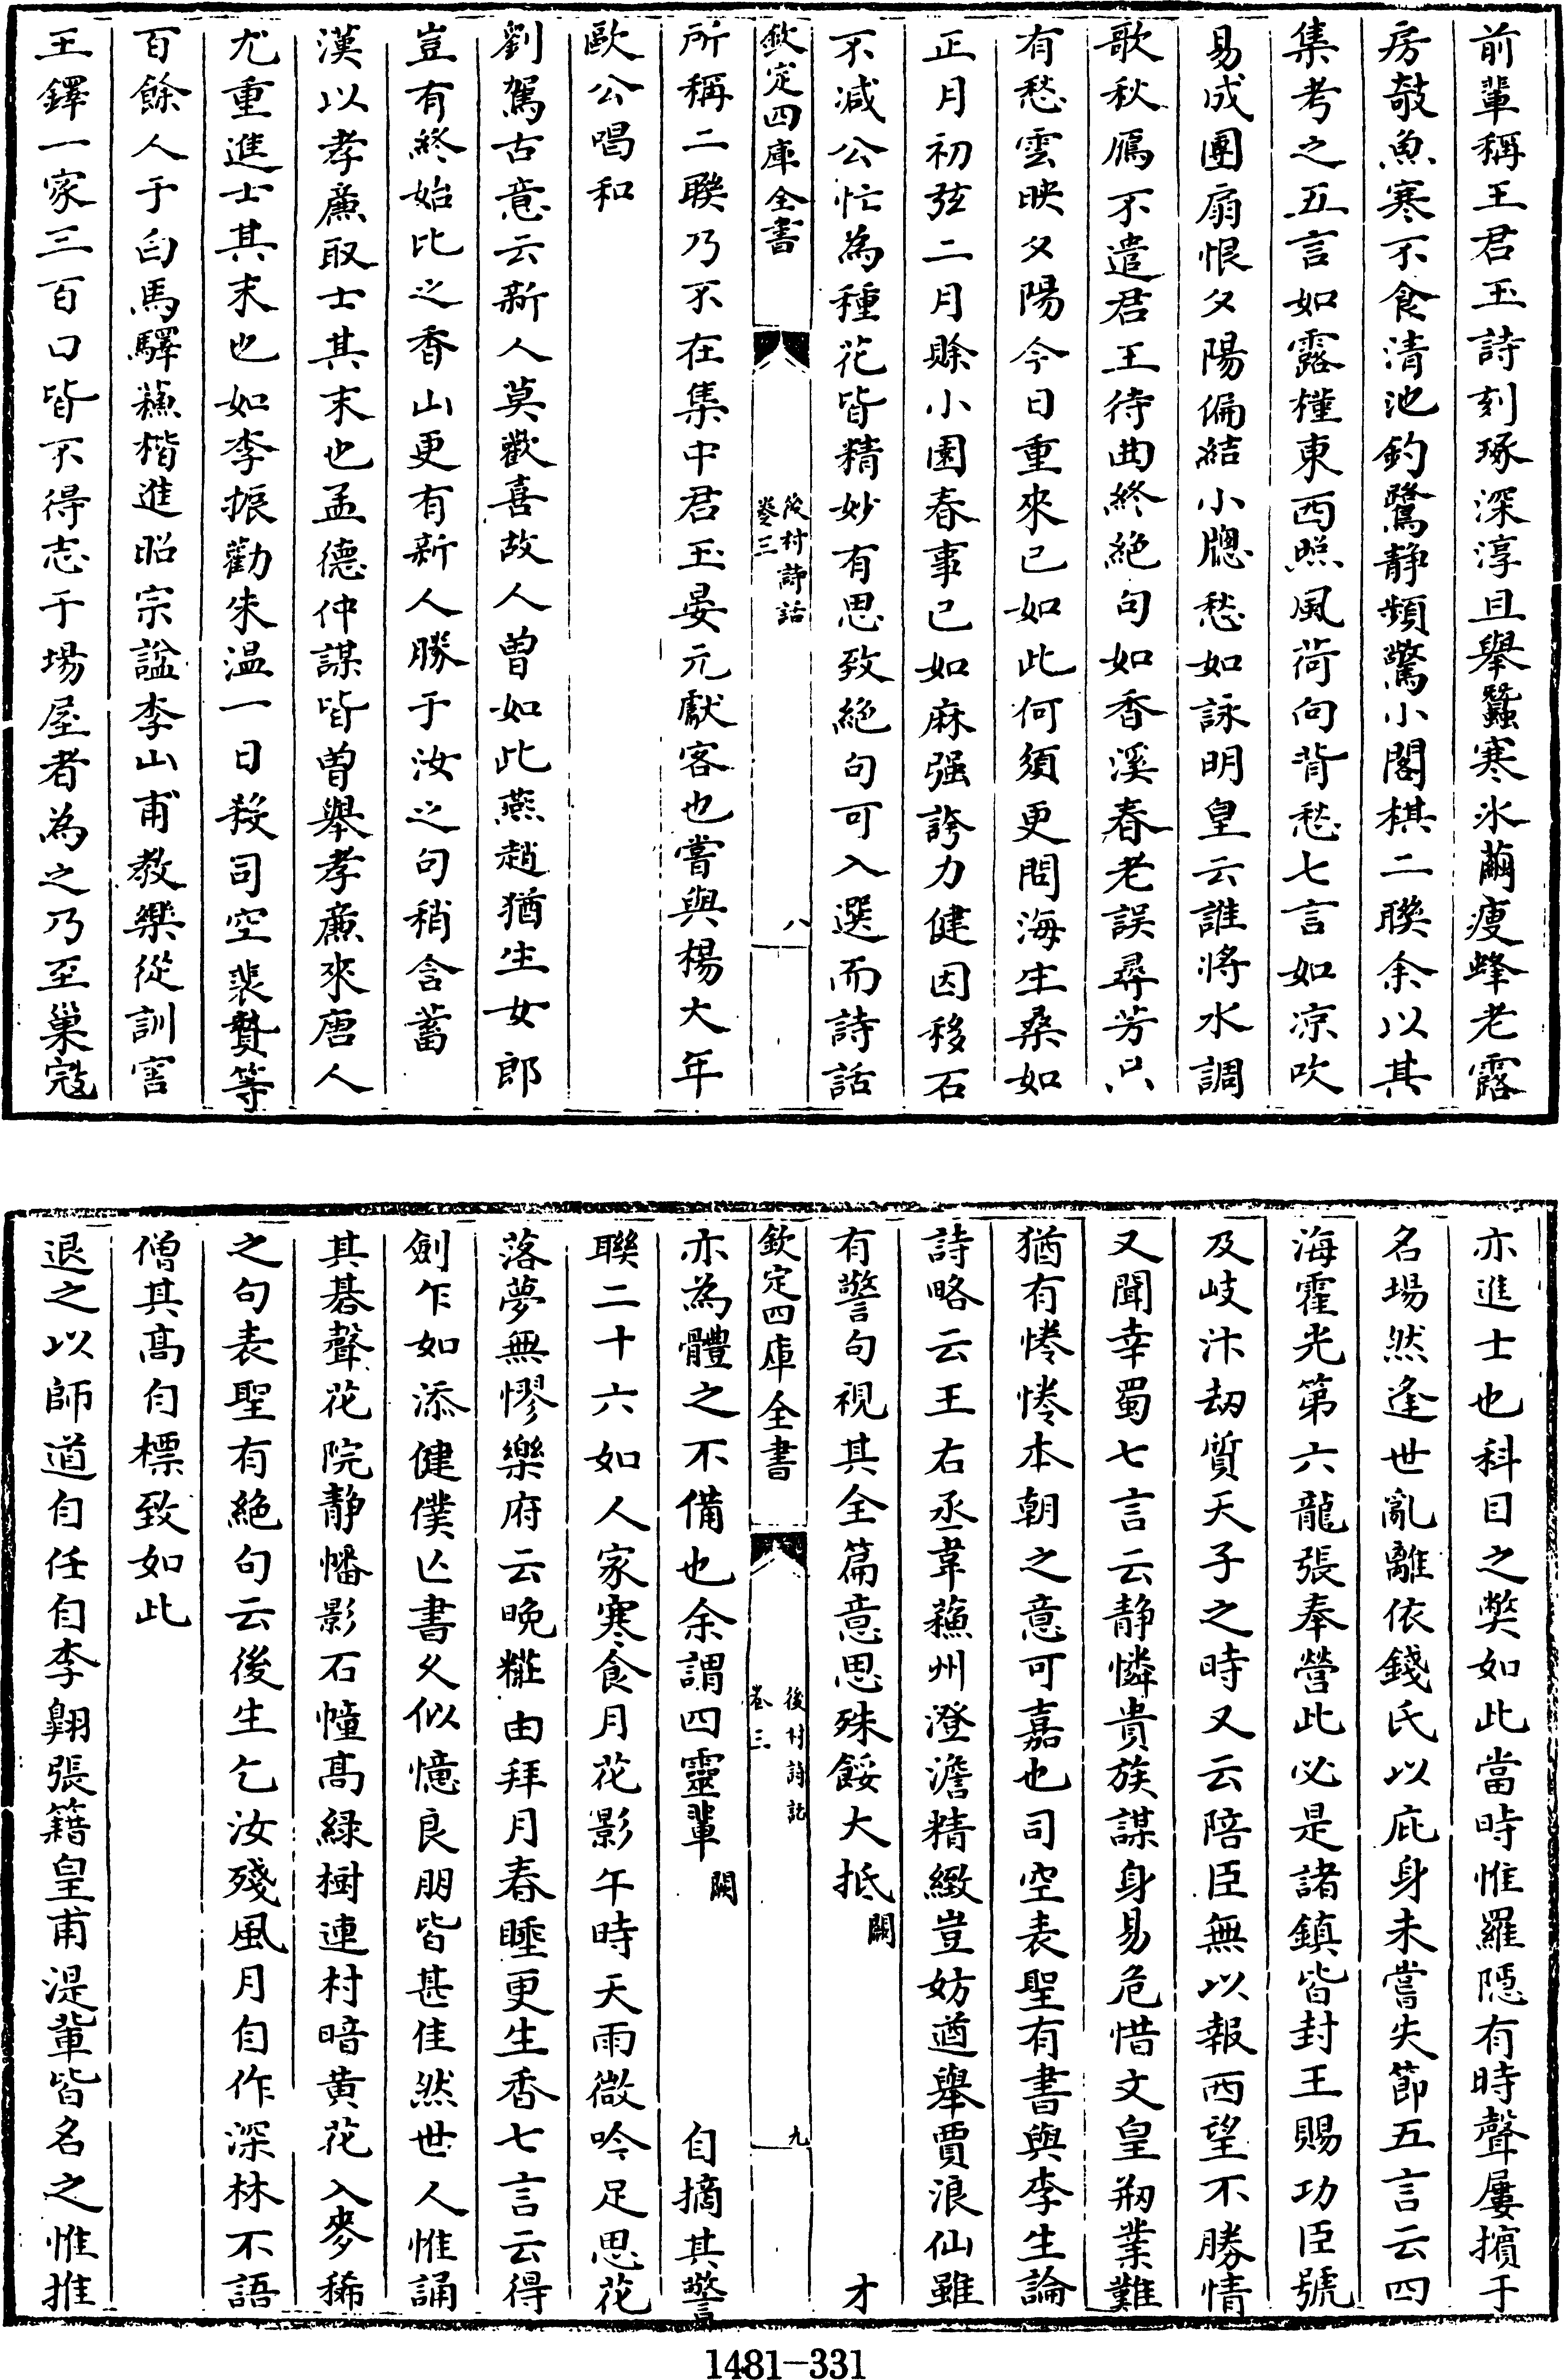 前輩稱王君玉詩刻琢深淳且舉蠶寒冰繭瘦蜂老露
房攲魚寒不食清池釣鷺静頻驚小閣棋二聯余以其
集考之五言如露槿東西照風荷向背愁七言如凉吹
易成團扇恨夕陽偏結小牕愁如詠明皇云誰將水調
歌秋鴈不遣君王待曲終絶句如香溪春老誤尋芳只
有愁雲映夕陽今日重來已如此何須更問海生桑如
正月初弦二月賖小園春事已如麻强誇力健因移石
不减公忙為種花皆精妙有思致絶句可入選而詩話
欽定四庫全書
後村詩話
卷三
八
所稱二聯乃不在集中君玉晏元獻客也嘗與楊大年
歐公唱和
劉駕古意云新人莫歡喜故人曽如此燕趙猶生女郎
豈有終始比之香山更有新人勝于汝之句稍含蓄
漢以孝廉取士其末也孟德仲謀皆曽舉孝廉來唐人
尤重進士其末也如李振勸朱温一日殺司空裴贄等
百餘人于白馬驛蘓楷進昭宗謚李山甫教樂從訓害
王鐸一家三百口皆不得志于場屋者為之乃至巢寇
亦進士也科目之獘如此當時惟羅隠有時聲屢擯于
名場然逢世亂離依錢氏以庇身未嘗失節五言云四
海霍光第六龍張奉營此必是諸鎮皆封王賜功臣號
及岐汴劫質天子之時又云陪臣無以報西望不勝情
又聞幸蜀七言云静憐貴族謀身易危惜文皇剏業難
猶有惓惓本朝之意可嘉也司空表聖有書與李生論
詩略云王右丞韋蘓州澄澹精緻豈妨遒舉賈浪仙雖
有警句視其全篇意思殊餒大抵闕才
欽定四庫全書
後村詩話
卷三
九
亦為體之不備也余謂四靈輩闕自摘其警
聯二十六如人家寒食月花影午時天雨微吟足思花
落夢無憀樂府云晩糚由拜月春睡更生香七言云得
劍乍如添健僕亡書久似憶良朋皆甚佳然世人惟誦
其碁聲花院静幡影石幢髙緑樹連村暗黄花入麥稀
之句表聖有絶句云後生乞汝殘風月自作深林不語
僧其髙自標致如此
退之以師道自任自李翶張籍皇甫湜軰皆名之惟推
1481-331